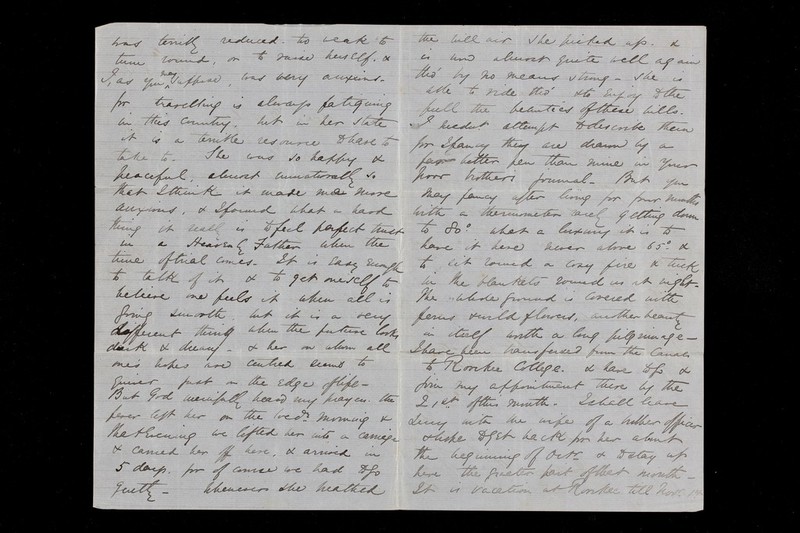 was terribly reduced. too weak to
turn round, or to raise herself. &
I, as you may suppose, was very anxious.
for travelling is always fatiguing
in this country. but in her state
it is a terrible resource to have to
take to. She was so happy &
peaceful, almost unnaturally so
that I think it made me more
anxious, & I found what a hard
thing it really is to feel perfect trust
in a Heavenly Father when the
time of trial comes. It is easy enough
to talk of it & to get oneself to
believe one feels it when all is
going smooth. but it is a very
different thing when the future looks
dark & dreary - & her on whom all
one's hopes are centred seems to
quiver just on the edge of life -
But God mercifully heard my prayer. the
fever left her on the morning &
that evening we lifted her into a carriage
& carried her off here. & arrived in
5 days. for of course we had to go
quietly - Whenever she breathed
the hill air she picked up. &
is now almost quite well again
tho' by no means strong - She is
able to ride tho' & to enjoy to the
full the beauties of these hills.
I needn't attempt to describe them
for I fancy they are drawn by a
far better pen than mine in your
poor brother's journal - But you
may fancy after living for four months
with a thermometer only getting down
to 80° what a luxury it is to
have it here never above 65° &
to sit round a cosy fire & tuck
in the blankets round us at night -
The whole ground is covered with
ferns & wild flowers, another beauty
in itself worth a long pilgrimage -
I have been transferred from the Canals
to Roorkee College. & have to go &
join my appointment there by the
21st of this month. I shall leave
with the wife of a brother officer
& hope to get back for her about
the beginning of Octr. & to stay up
here the greater part of that month -
It is vacation at Roorkee till Novr.